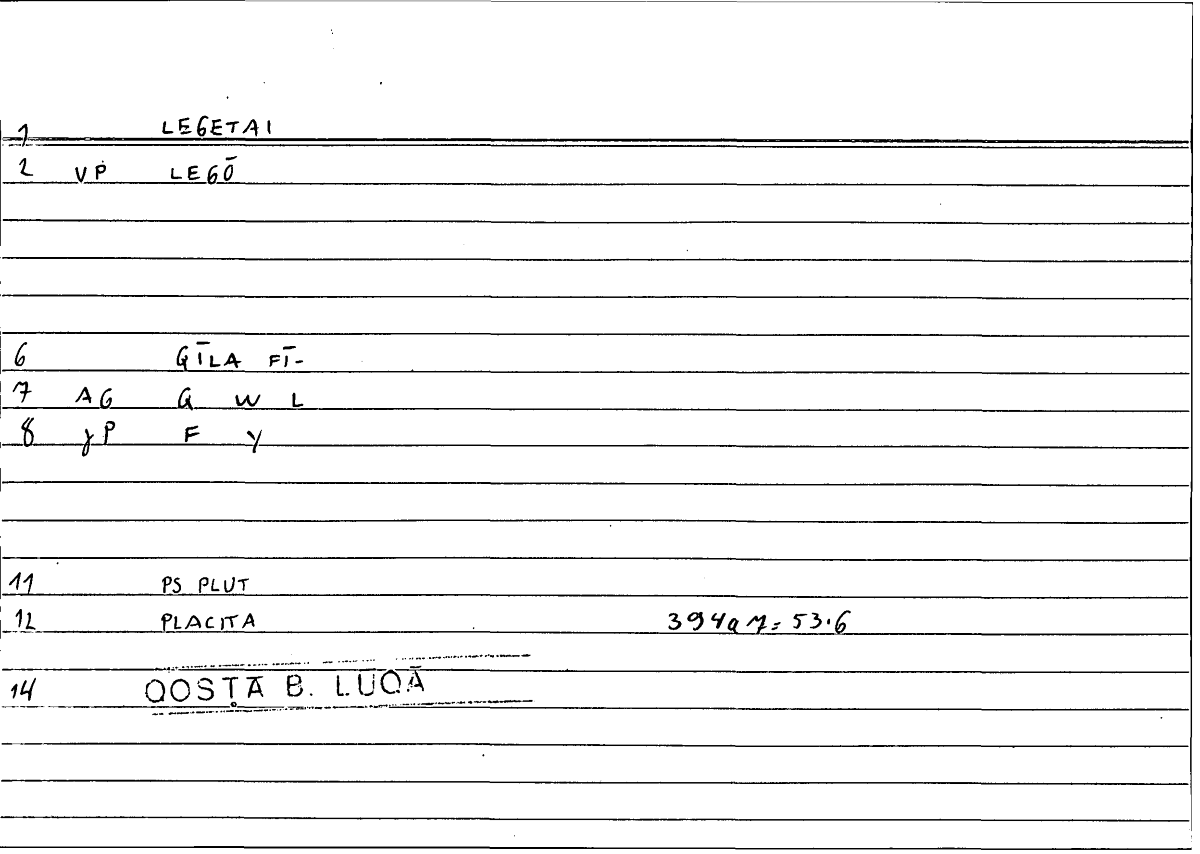 1 LEGETAI
2 VP LEGŌ
6 QĪLA FĪ-
7 AG Q W L
8 JP F Y
11 PS PLUT
12 PLACITA 394a7=53.6
14 QOSṬĀ B. LUQĀ